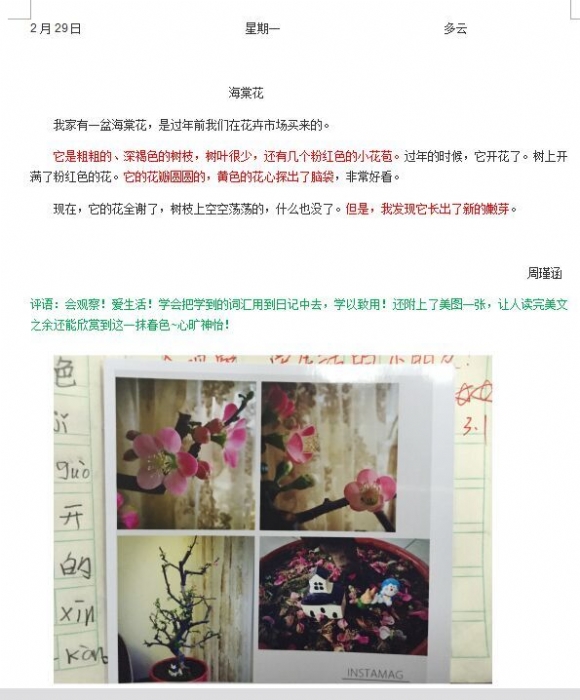 2月29日 星期一 多云
海棠花
我家有一盆海棠花，是过年前我们在花卉市场买来的。
它是粗粗的、深褐色的树枝，树叶很少，还有几个粉红色的小花苞。过年的时候，它开花了。树上开
满了粉红色的花。它的花瓣圆圆的，黄色的花心探出了脑袋，非常好看。
现在，它的花全谢了，树枝上空空荡荡的，什么也没了。但是，我发现它长出了新的嫩芽。
周瑾涵
评语：会观察！爱生活！学会把学到的词汇用到日记中去，学以致用！还附上了美图一张，让人读完美文
之余还能欣赏到这一抹春色~心旷神怡！
色
jì
guò
开
的
xīn
3.1
INSTAMAG